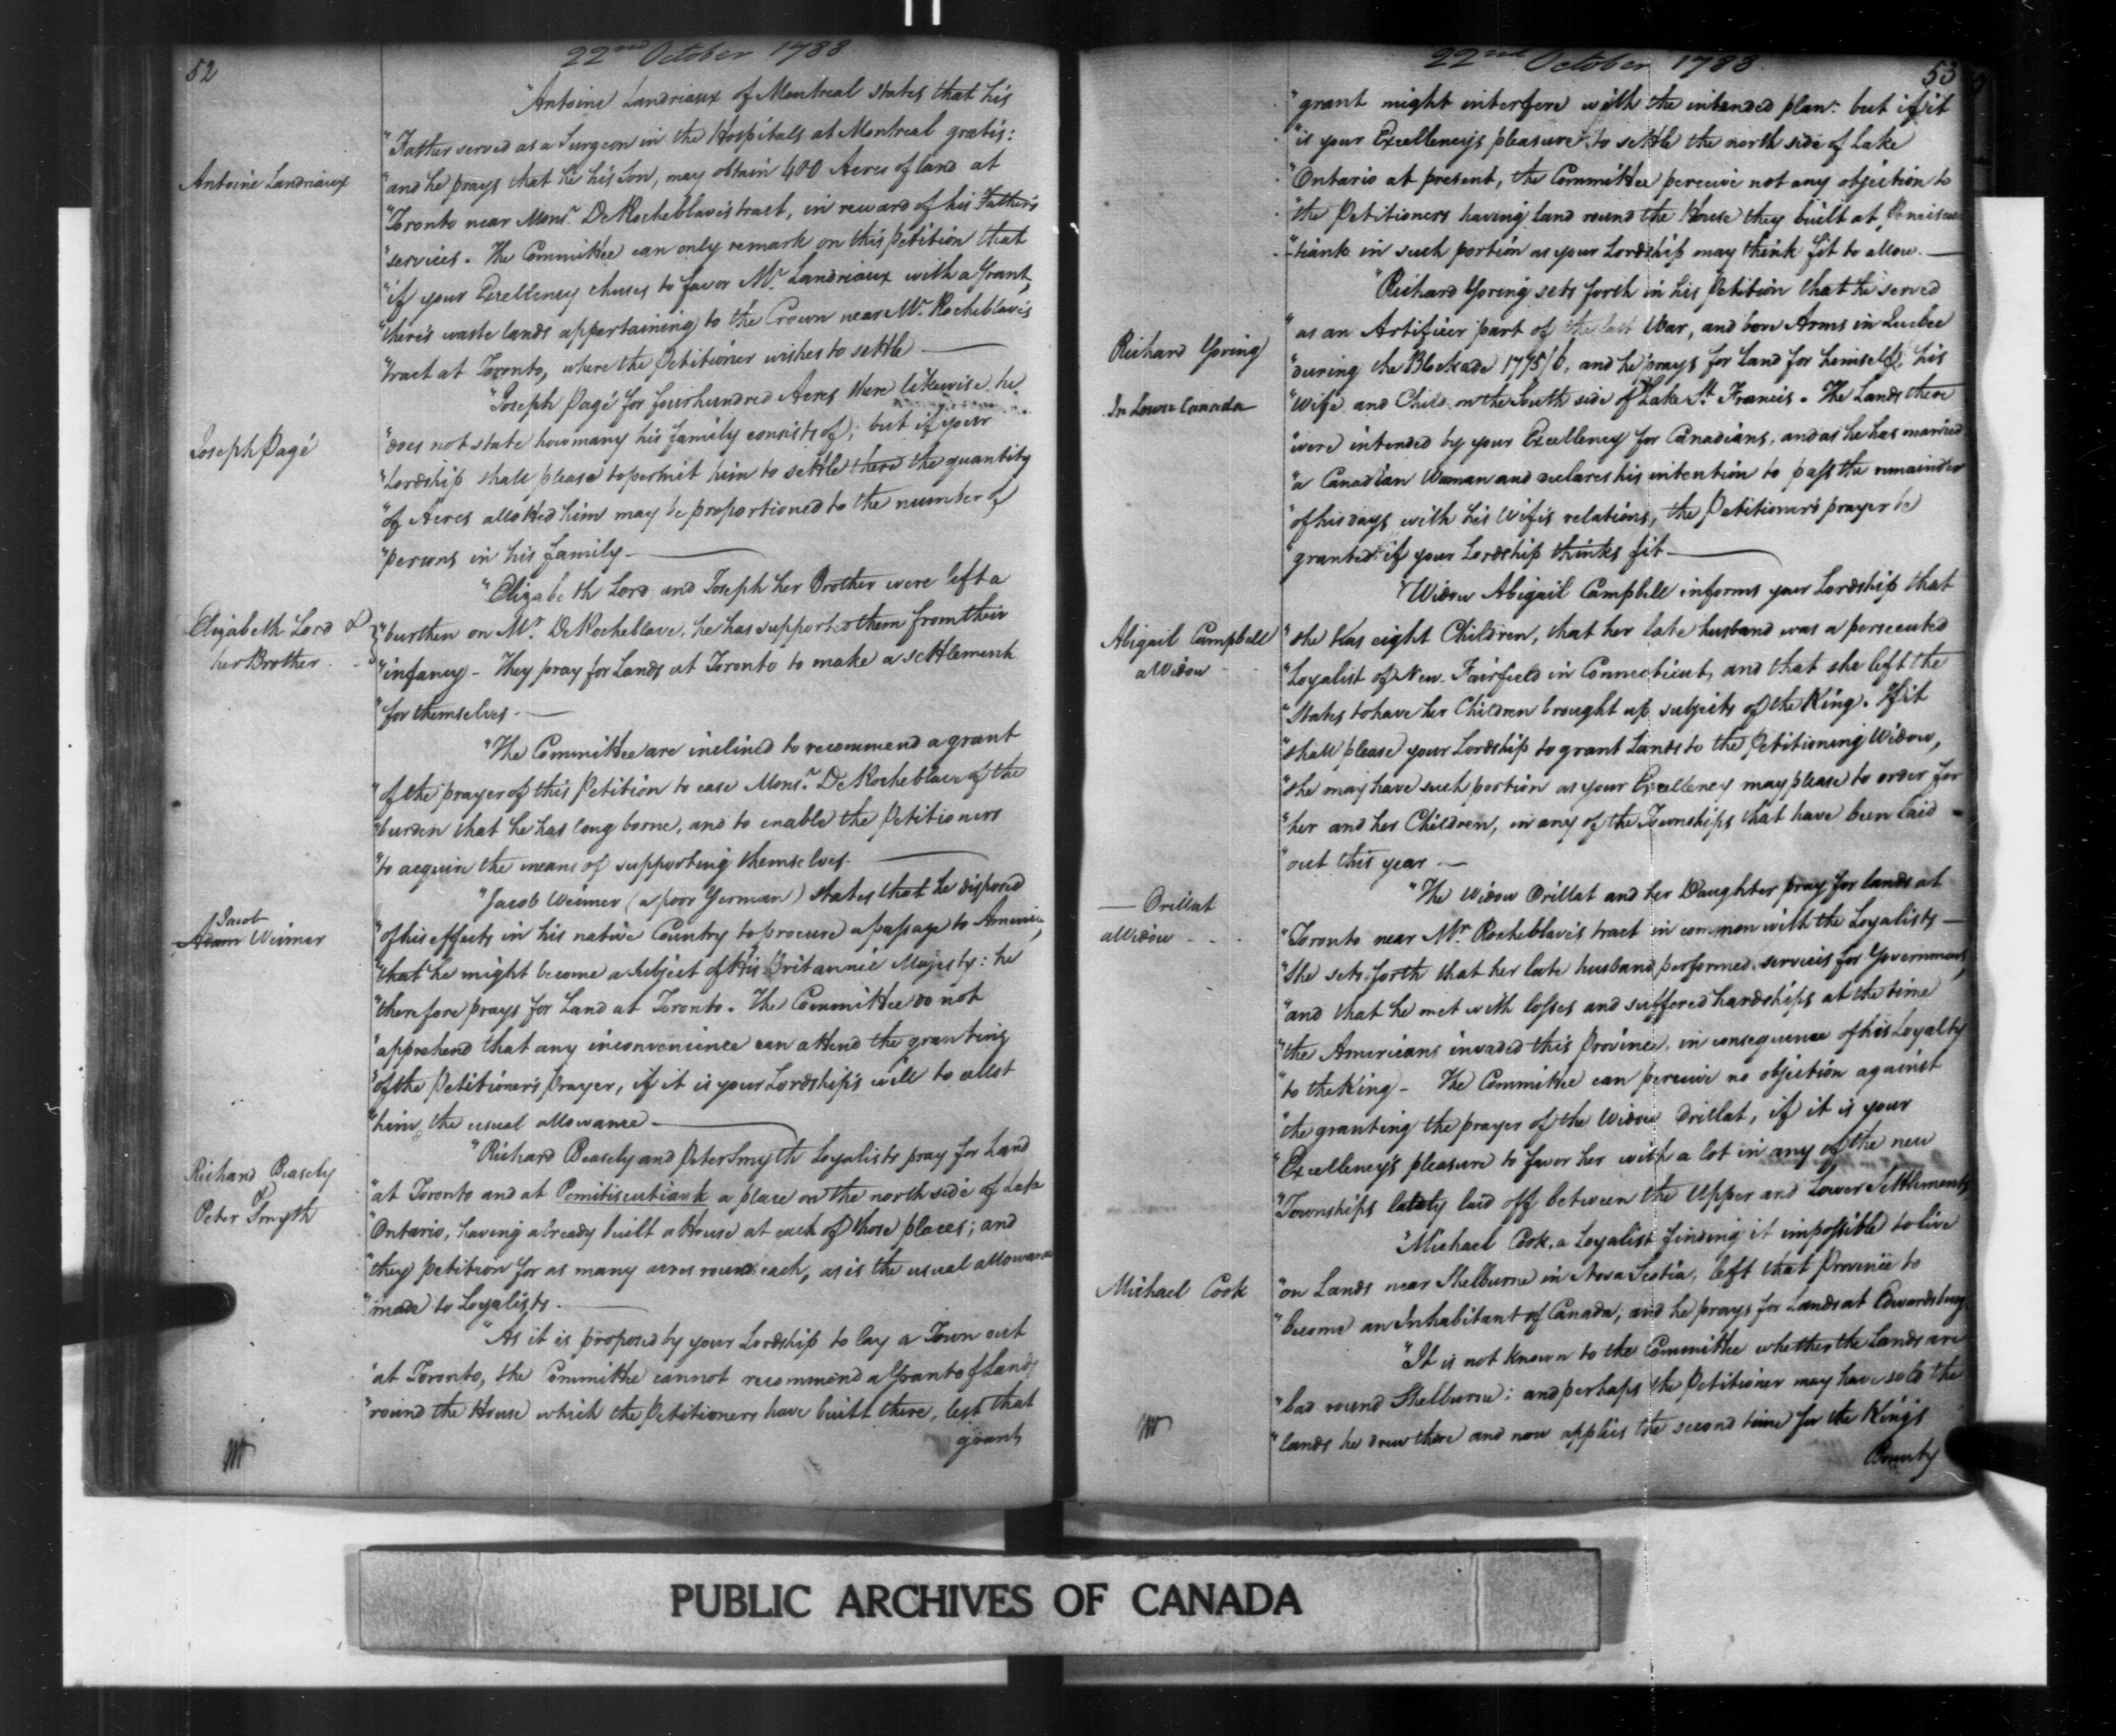 52
22nd October 1788
"Antoine Landriaux of Montreal states that his
"Father served as a Surgeon in the Hospitals at Montreal gratis:
Antoine Landriaux
"and he prays that he his Son, may obtain 400 Acres of land at
"Toronto near Monsr. De Rocheblave's tract, in reward of his Father's
"services. The Committee can only remark on this Petition that
"if your Excellency chuses to favor Mr. Landriaux with a Grant,
"there's waste lands appertaining to the Crown near Mr. Rocheblave's
"tract at Toronto, where the Petitioner wishes to settle —
"Joseph Pagé for four hundred Acres there likewise. he
Joseph Pagé
"does not state how many his family consists of; but if your
"Lordship shall please to permit him to settle there the quantity
"of Acres allotted him may be proportioned to the number of
"persons in his family —
"Elizabeth Lord and Joseph her Brother were left a
Elizabeth Lord &
her Brother.
"burthen on Mr. De Rocheblave. he has supported them from their
"infancy - They pray for Lands at Toronto to make a settlement
"for themselves. —
"The Committee are inclined to recommend a grant
"of the prayer of this Petition to ease Monsr. De Rocheblave of the
"burden that he has long borne, and to enable the Petitioners
"to acquire the means of supporting themselves. —
"Jacob Weimer (a poor German) states that he disposed
Jacob
Adam Weimer
"of his effects in his native Country to procure a passage to America,
"that he might become a subject of His Britannic Majesty: he
"therefore prays for Land at Toronto. The Committee do not
"apprehend that any inconvenience can attend the granting
"of the Petitioner's prayer, if it is your Lordship's will to allot
"him, the usual allowance —
"Richard Beasely and Peter Smyth Loyalists pray for Land
Richard Beasely
Peter Smyth
"at Toronto and at Pemitiscutiank a place on the north side of Lake
"Ontario, having already built a House at each of those places; and
"they petition for as many acres round each, as is the usual allowance
"made to Loyalists. —
"As it is proposed by your Lordship to lay a Town out
"at Toronto, the Committee cannot recommend a Grant of Lands
"round the House which the Petitioners have built there, lest that
grant
22nd October 1788.
53
"grant might interfere with the intended plan: but if it
"is your Excellency's pleasure to settle the north side of Lake
"Ontario at present, the Committee perceive not any objection to
"the Petitioners having land round the House they built at
"tiank in such portion as your Lordship may think fit to allow. —
"Richard Goring sets forth in his Petition that he served
"as an Artificer part of the last War, and bore Arms in Quebec
Richard Goring
"during the Blockade 1775/6, and he prays for land for himself, his
In Lower Canada
"Wife and Child on the South side of Lake St. Francis. The Lands there
"were intended by your Excellency for Canadians, and as he has married
"a Canadian Woman and declares his intention to pass the remainder
"of his days with his Wife's relations, the Petitioner's prayer be
"granted if your Lordship thinks fit —
"Widow Abigail Campbell informs your Lordship that
Abigail Campbell
a Widow
"she has eight Children, that her late husband was a persecuted
"Loyalist of New Fairfield in Connecticut, and that she left the
"States to have her Children brought up subjects of the King. If it
"shall please your Lordship to grant Lands to the Petitioning Widow,
"she may have such portion as your Excellency may please to order for
"her and her Children, in any of the Townships that have been laid
"out this year —
"The Widow Orillat and her Daughter pray for lands at
— Orillat
a Widow
"Toronto near Mr. Rocheblave's tract in common with the Loyalists —
"She sets forth that her late husband performed services for Government,
"and that he met with losses and suffered hardships at the time
"the Americans invaded this Province, in consequence of his Loyalty
"to the King - The Committee can perceive no objection against
"the granting the prayer of the Widow Orillat, if it is your
"Excellency's pleasure to favor her with a lot in any of the new
"Townships lately laid off between the Upper and Lower Settlements
"Michael Cook, a Loyalist finding it impossible to live
Michael Cook
"on Lands near Shelburne in Nova Scotia, left that Province to
"become an Inhabitant of Canada; and he prays for Lands at Edwardsburg
"It is not known to the Committee whether the Lands are
"bad round Shelburne; and perhaps the Petitioner may have sold the
"lands he drew there and now applies the second time for the King's
Bounty
PUBLIC ARCHIVES OF CANADA